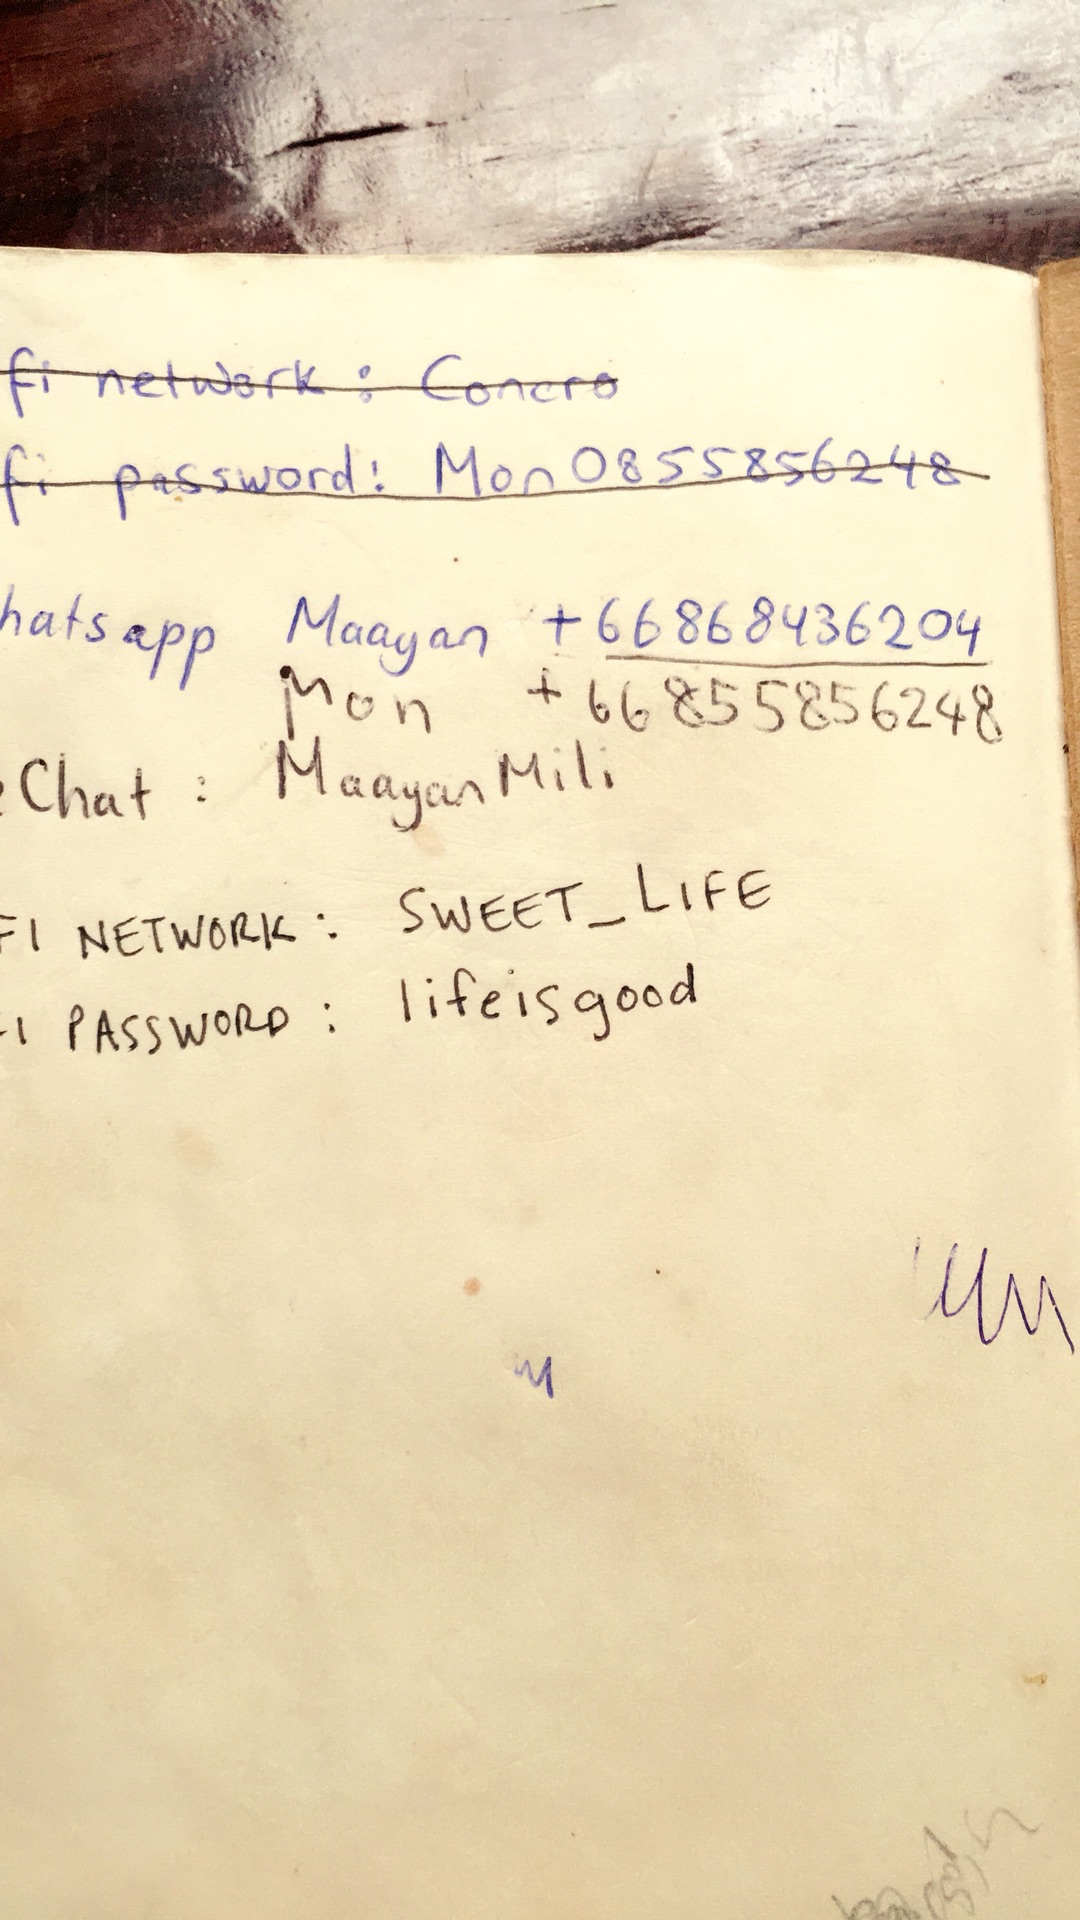 fi network: Concro
fi password: Mon0855856248
hatsapp Maayan +66868436204
Mon +66855856248
eChat: MaayanMili
FI NETWORK: SWEET_LIFE
FI PASSWORD: lifeisgood